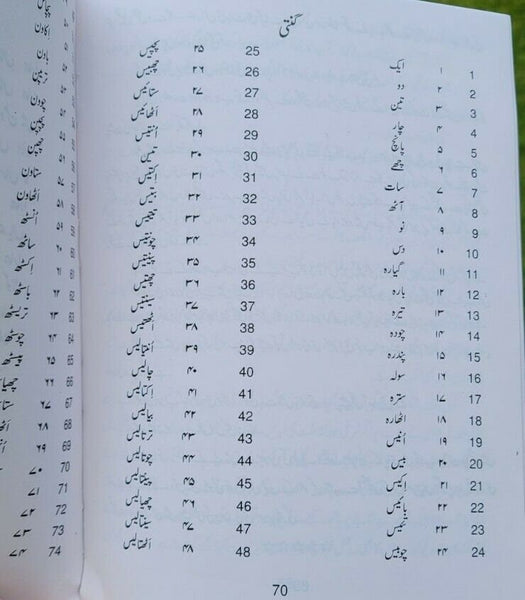 گنتی
1 ۱ ایک
2 ۲ دو
3 ۳ تین
4 ۴ چار
5 ۵ پانچ
6 ۶ چھے
7 ۷ سات
8 ۸ آٹھ
9 ۹ نو
10 ۱۰ دس
11 ۱۱ گیارہ
12 ۱۲ بارہ
13 ۱۳ تیرہ
14 ۱۴ چودہ
15 ۱۵ پندرہ
16 ۱۶ سولہ
17 ۱۷ سترہ
18 ۱۸ اٹھارہ
19 ۱۹ اُنیس
20 ۲۰ بیس
21 ۲۱ اکیس
22 ۲۲ بائیس
23 ۲۳ تئیس
24 ۲۴ چوبیس
25 ۲۵ پچیس
26 ۲۶ چھبیس
27 ۲۷ ستائیس
28 ۲۸ اٹھائیس
29 ۲۹ اُنتیس
30 ۳۰ تیس
31 ۳۱ اکتیس
32 ۳۲ بتیس
33 ۳۳ تینتیس
34 ۳۴ چونتیس
35 ۳۵ پینتیس
36 ۳۶ چھتیس
37 ۳۷ سینتیس
38 ۳۸ اٹھتیس
39 ۳۹ اُنتالیس
40 ۴۰ چالیس
41 ۴۱ اکتالیس
42 ۴۲ بیالیس
43 ۴۳ ترتالیس
44 ۴۴ چوتالیس
45 ۴۵ پینتالیس
46 ۴۶ چھیالیس
47 ۴۷ سینتالیس
48 ۴۸ اٹھتالیس
70
پچاس
اکاون
باون
ترپن
چوون
پچپن
چھپن
ستاون
58 ۵۸ اٹھاون
59 ۵۹ اُنسٹھ
60 ۶۰ ساٹھ
61 ۶۱ اکسٹھ
62 ۶۲ باسٹھ
63 ۶۳ تریسٹھ
64 ۶۴ چوسٹھ
65 ۶۵ پینسٹھ
66 ۶۶
67 ۶۷
68 ۶۸
69 ۶۹
70 ۷۰
71 ۷۱
72 ۷۲
73 ۷۳
74 ۷۴